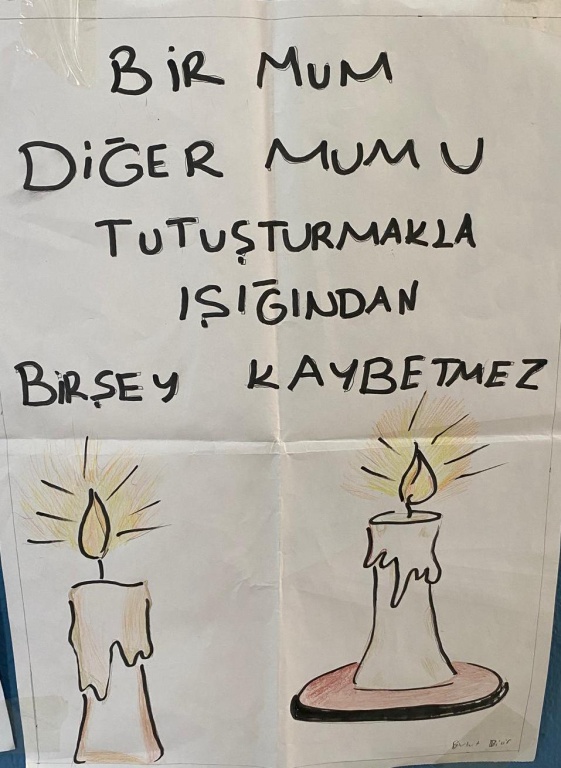 BİR MUM
DİĞER MUMU
TUTUŞTURMAKLA
IŞIĞINDAN
BİRŞEY KAYBETMEZ